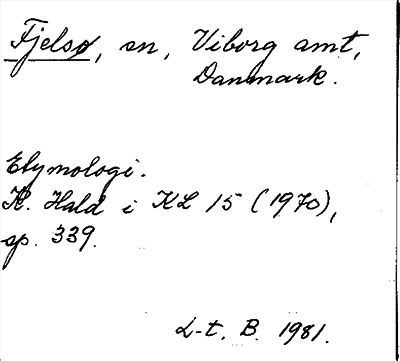 Fjelsø, sn, Viborg amt,
Danmark.
Etymologi.
K. Hald i KL 15 (1970),
sp. 339.
L-t. B. 1981.